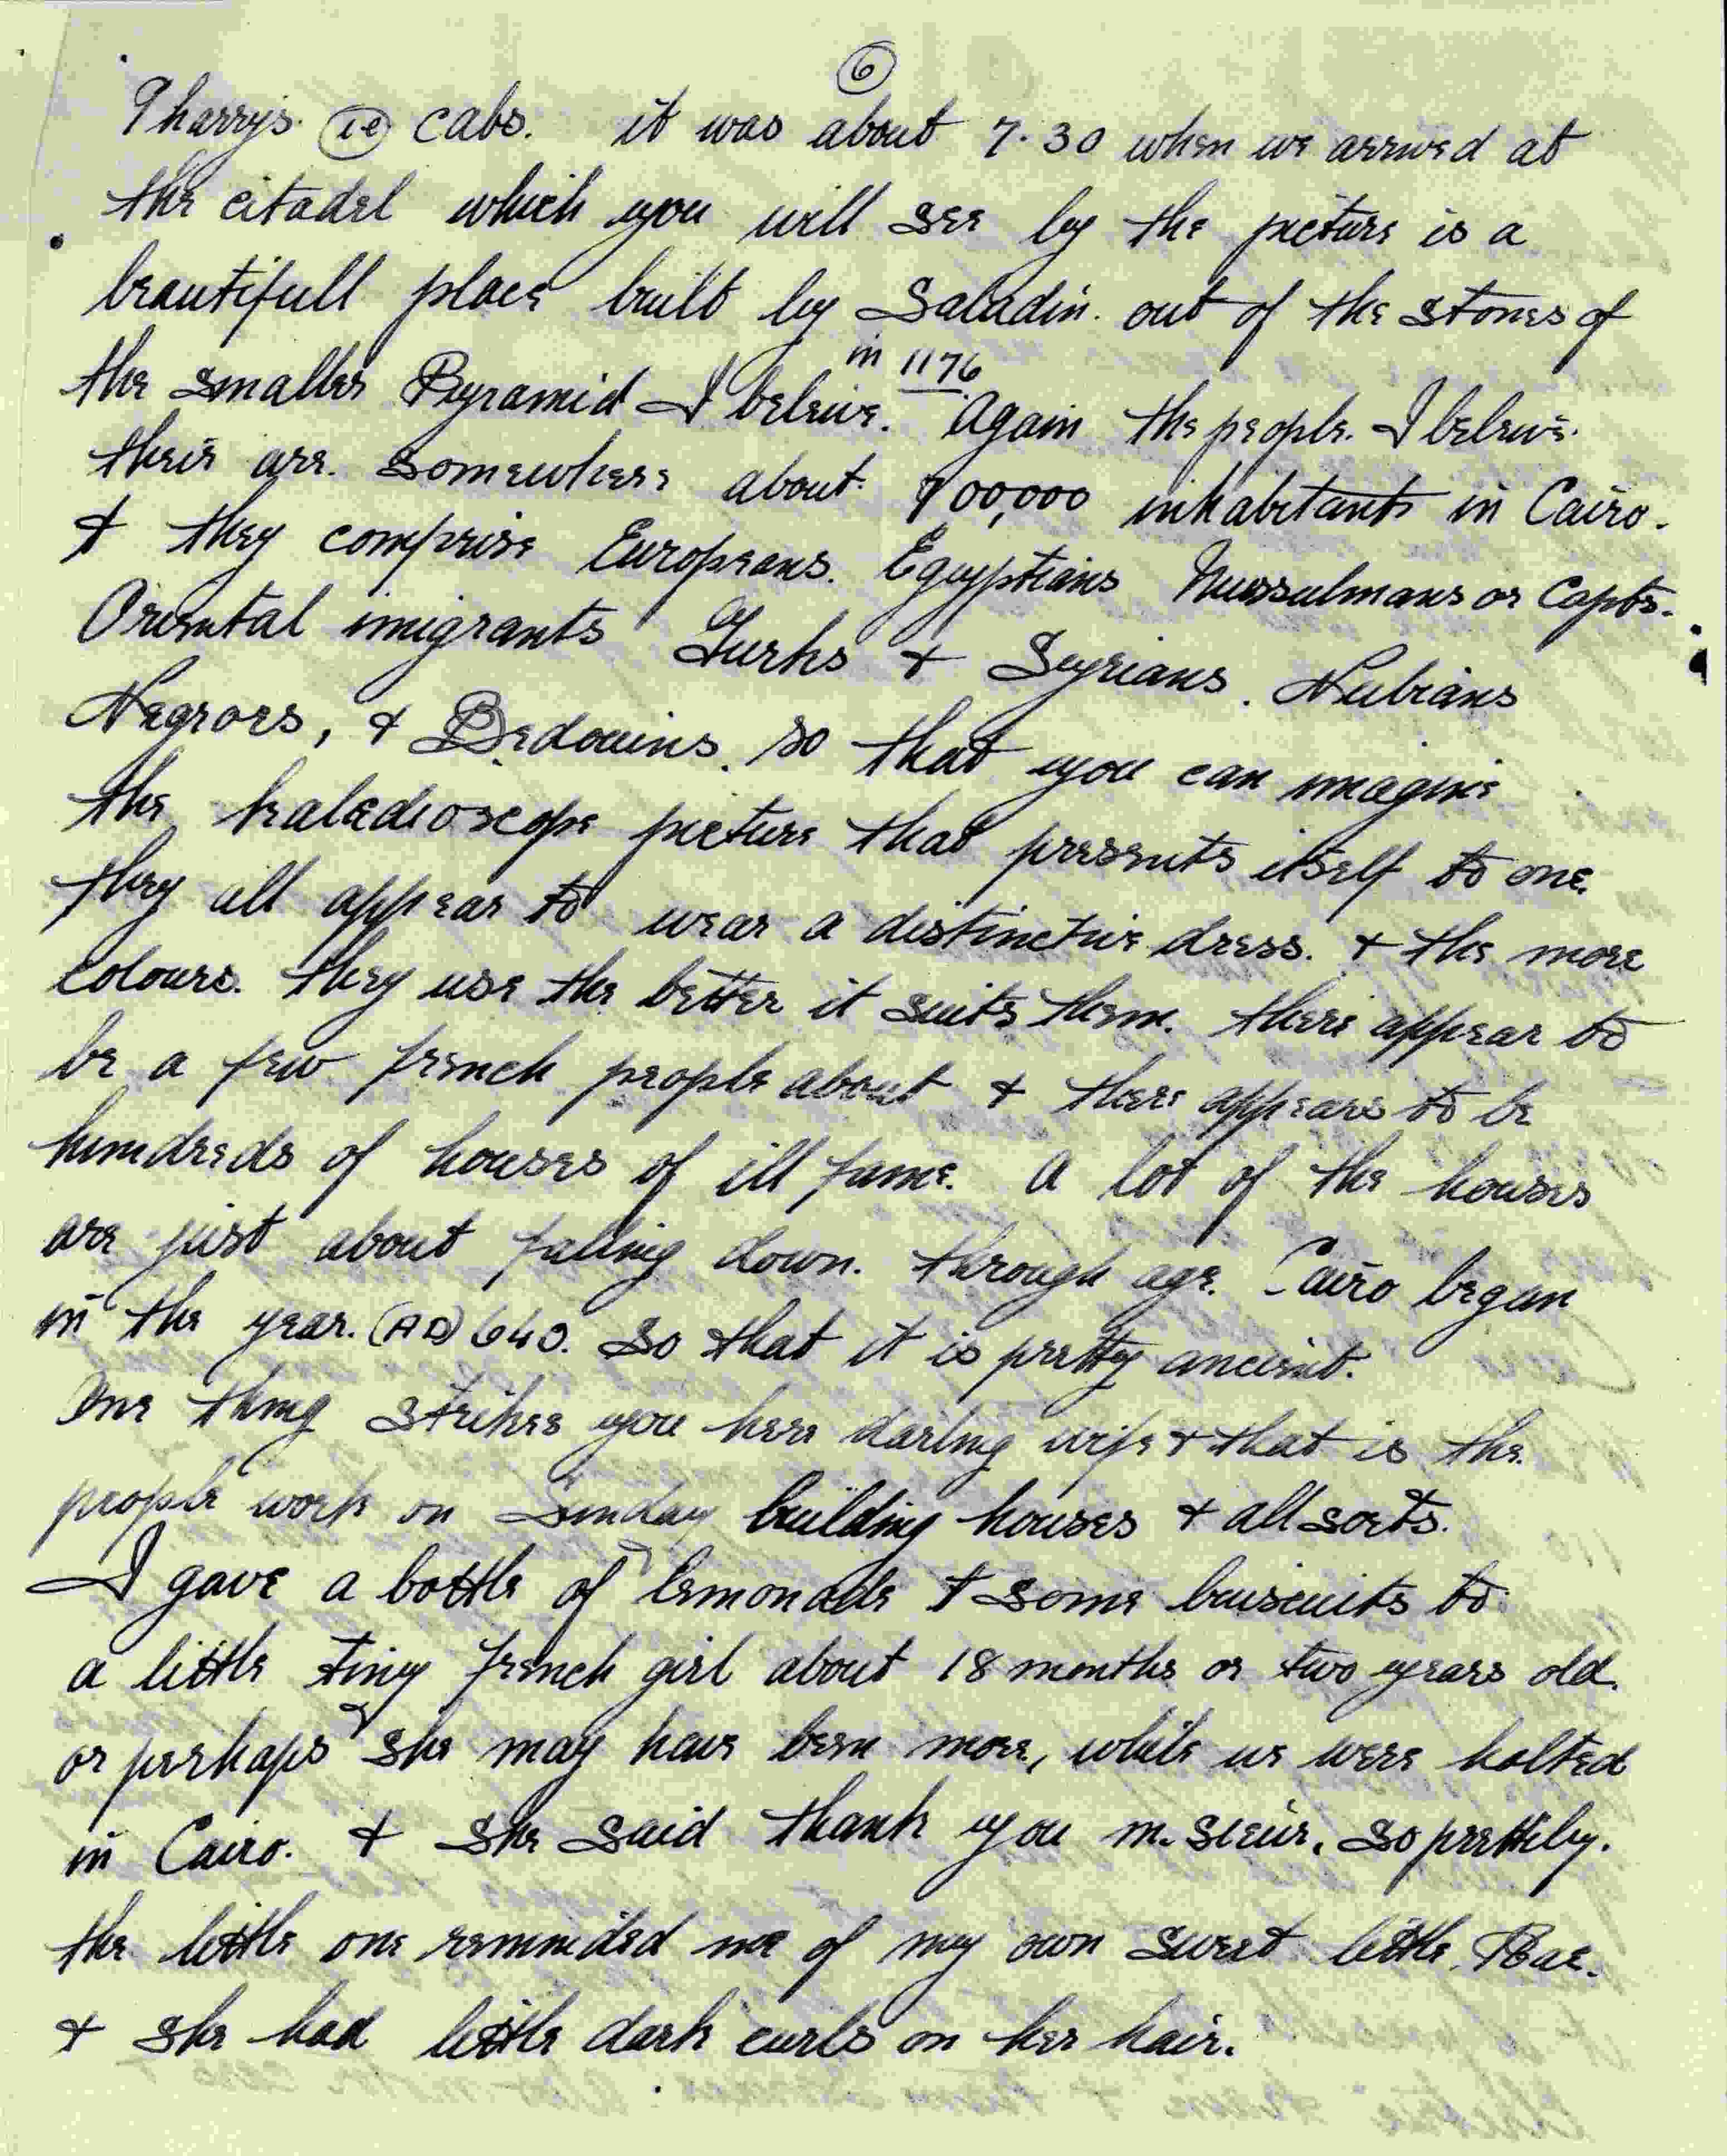 6
Gharrys. ie cabs. it was about 7.30 when we arrived at
the citadel which you will see by the picture is a
beautifull place built by Saladin. out of the stones of
in 1176
the smaller Pyramid I beleive. Again the people. I beleive.
their are. somewhere about. 700,000 inhabitants in Cairo.
& they comprise Europeans. Egyptians Mussulmans or Copts.
Oriental imigrants Turks & Syrians. Nubians
Negroes, & Bedouins. so that you can imagine
the kaledioscope picture that presents itself to one.
they all appear to wear a distinctive dress. & the more
colours. they use the better it suits them. there appear to
be a few french people about & there appears to be
hundreds of houses of ill fame. a lot of the houses
are just about falling down. through age. Cairo began
in the year. (AD) 640. So that it is pretty ancient.
One thing strikes you here darling wife & that is the.
people work on Sunday building houses & all sorts.
I gave a bottle of lemonade & some buiscuits to
a little tiny french girl about 18 months or two years old.
or perhaps she may have been more, while we were halted
in Cairo. & she said thank you m.sieur. so prettily.
the little one reminded me of my own sweet little Rae.
& she had little dark curls on her hair.